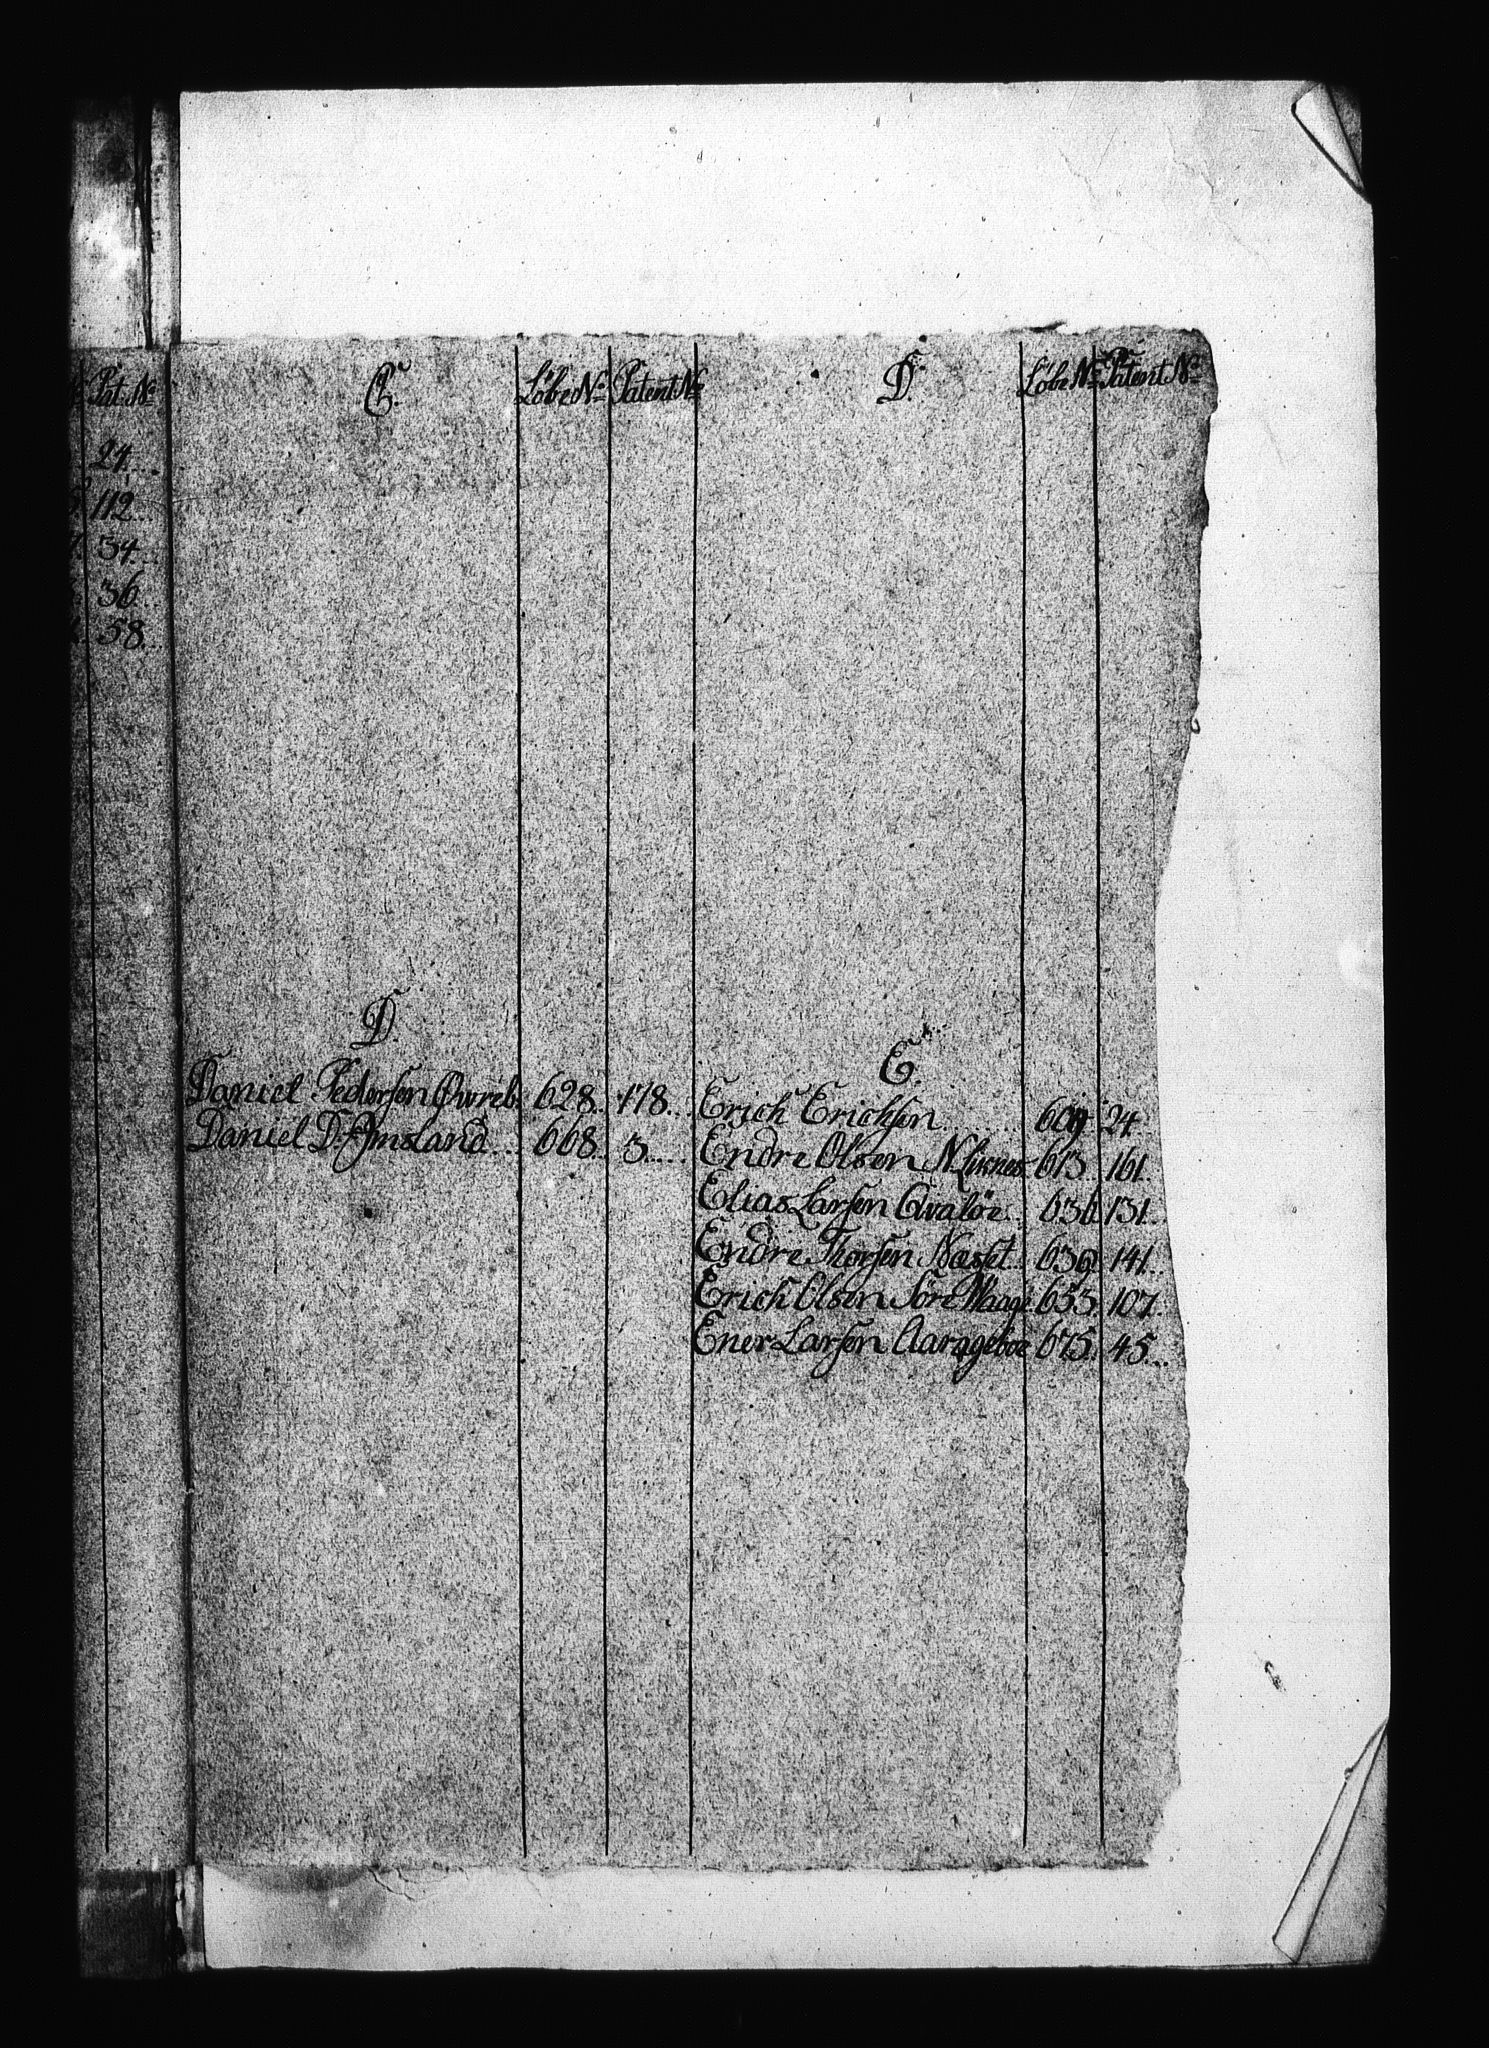 Pat. No
24...
112...
34...
36...
58...
C. Löbe No Patent No
D.
Daniel Pedersen Qvreb. 628.. 178...
Daniel D. Omsland... 668.. 3....
D. Löbe No Patent No
E.
Erich Erichsen........ 609 24
Endre Olsen N. Liknes 613.. 161..
Elias Larsen Qvaløe.. 636 131..
Endre Thorsen Næsset.. 639 141..
Erich Olsen Söre Waage 653 107.
Ener Larsen 675. 45...